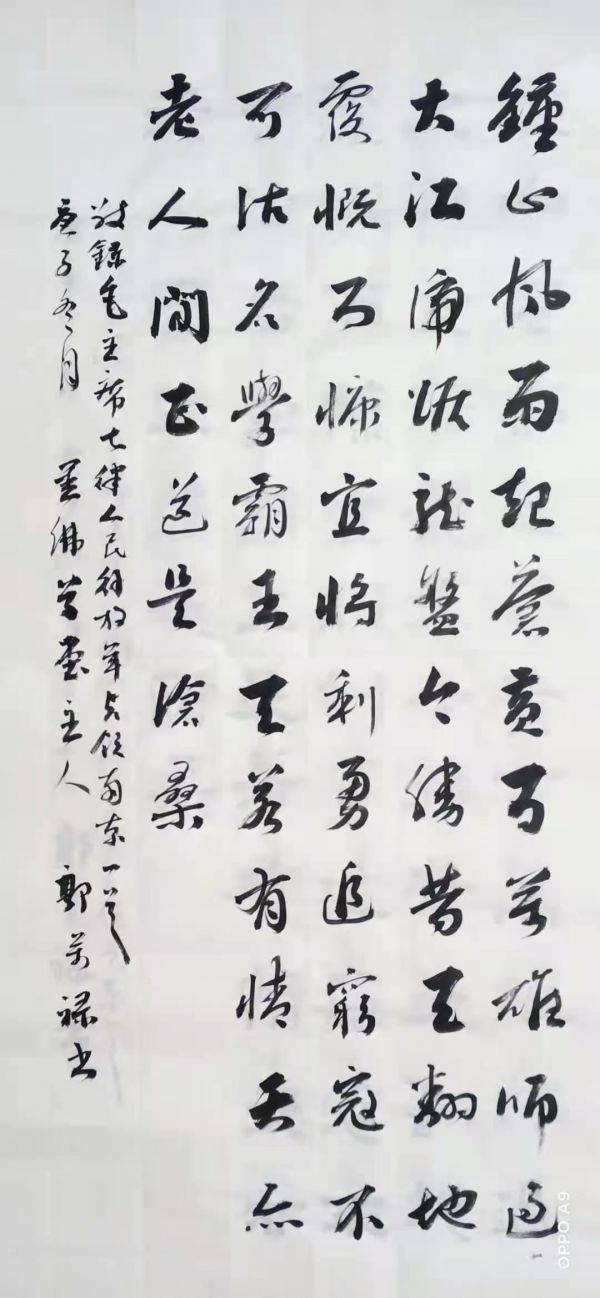 鍾山風雨起蒼黃百萬雄師過
大江虎踞龍盤今勝昔天翻地
覆慨而慷宜將剩勇追窮寇不
可沽名學霸王天若有情天亦
老人間正道是滄桑
敬錄毛主席七律人民解放軍占領南京一首
庚子冬月 主人 郭萬祿书
OPPO A9